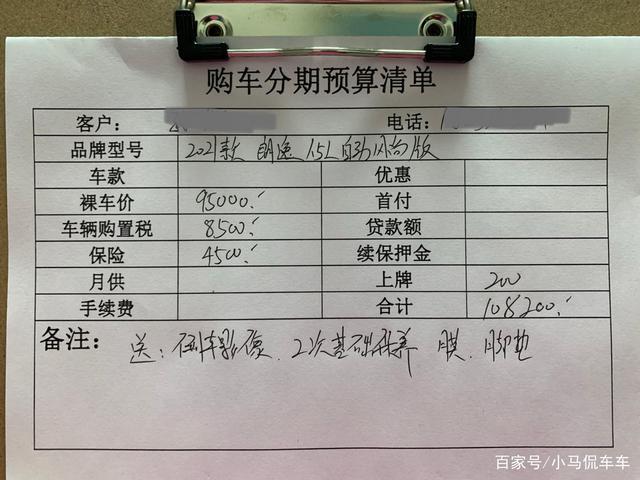 购车分期预算清单
客户： 电话：
品牌型号 2021款 朗逸 1.5L自动风尚版
车款 优惠
裸车价 95000.- 首付
车辆购置税 8500.- 贷款额
保险 4500.- 续保押金
月供 上牌 200
手续费 合计 108200.-
备注： 送：倒车影像、2次基础保养 膜、脚垫
百家号/小马侃车车